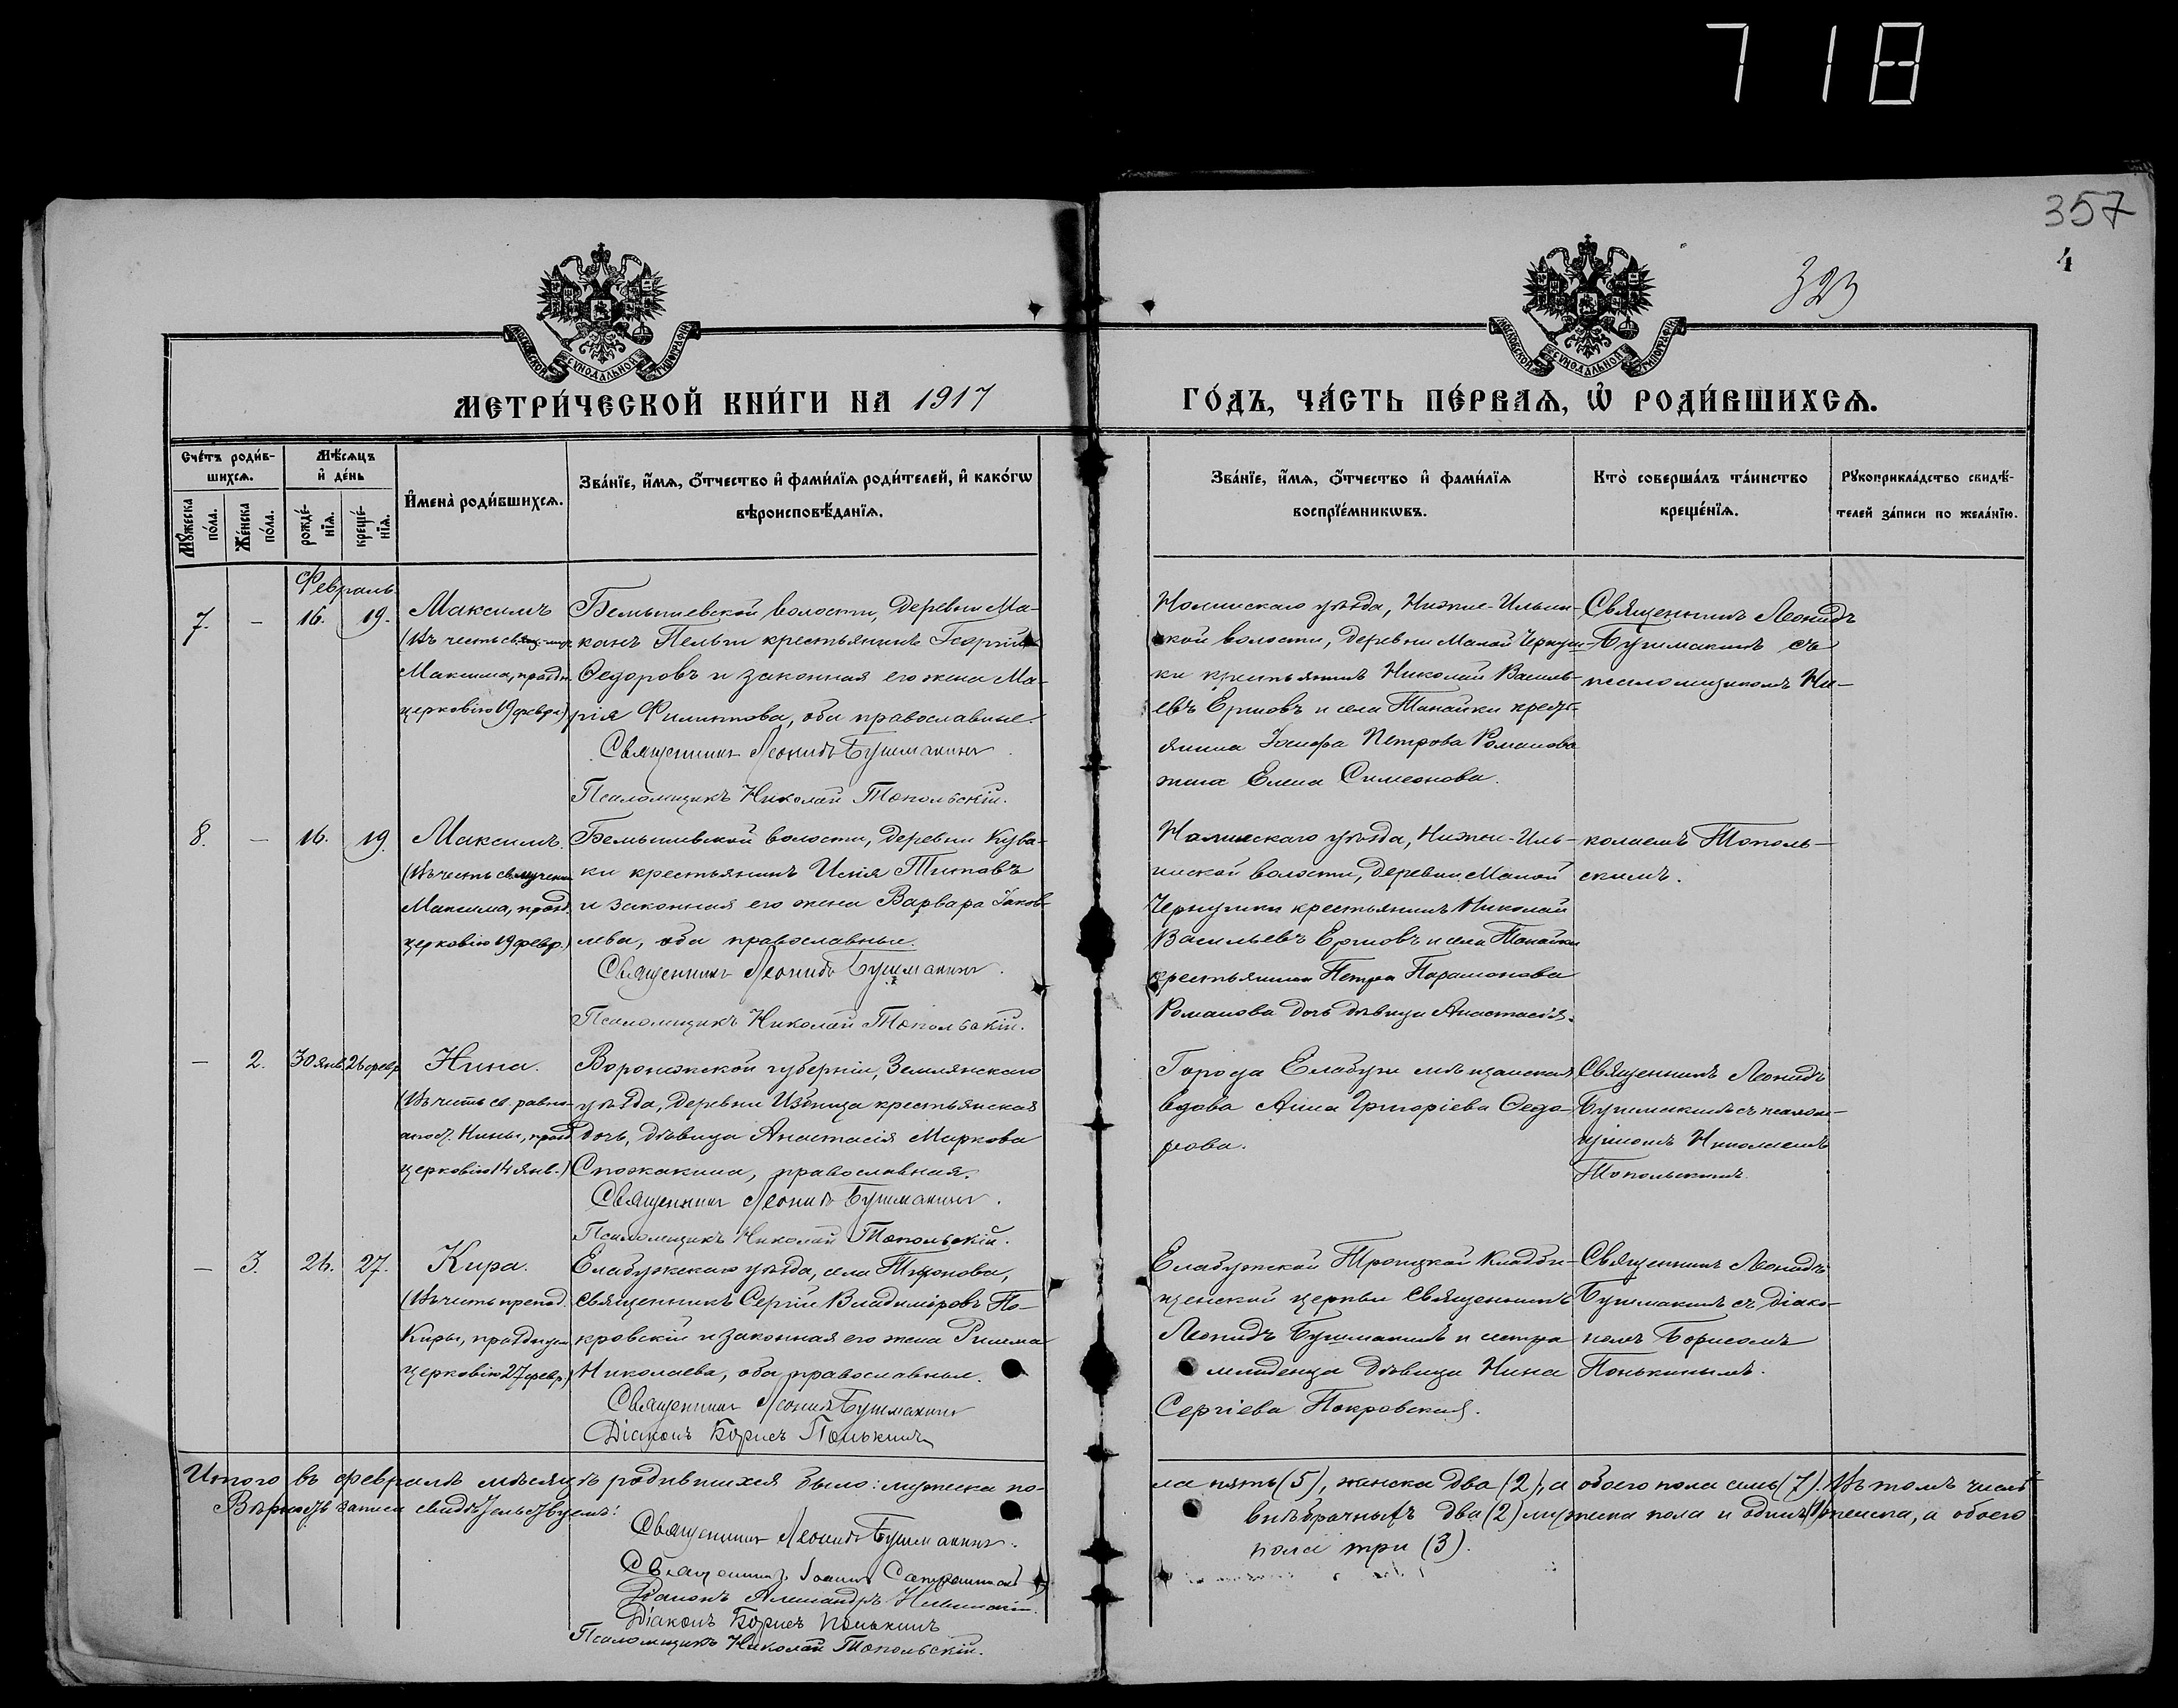 718
357
4
323
МОСКОВСКОЙ СѴНОДАЛЬНОЙ ТИПОГРАФІИ
МОСКОВСКОЙ СѴНОДАЛЬНОЙ ТИПОГРАФІИ
МЕТРИ́ЧЕСКОЙ КНИ́ГИ НА 1917
ГО́ДЪ, ЧА́СТЬ ПЕ́РВАѦ, Ѡ҆ РОДИ́ВШИХСѦ.
Сче́тъ роди́в-
шихсѧ.
Мѣ́сѧцъ
и҆ де́нь
Мꙋ́жеска
по́ла.
Же́нска
по́ла.
рожде́-
нїѧ.
креще́-
нїѧ.
И҆мена̀ роди́вшихсѧ.
Зва́нїе, и҆́мѧ, ѻ҆́тчество и҆ фами́лїѧ роди́телей, и҆ како́гѡ
вѣроисповѣ́данїѧ.
Зва́нїе, и҆́мѧ, ѻ҆́тчество и҆ фами́лїѧ
воспрїе́мникѡвъ.
Кто̀ соверша́лъ та́инство
креще́нїѧ.
Рꙋкоприкла́дство свидѣ́-
телей за́писи по жела́нїю.
Февраль.
7. - 16. 19.
Максимъ
(Въ честь св.
Максима, праздн.
церковію 19 февр.)
Бемышевской волости, деревни Ма-
канъ Пельги крестьянинъ Георгій
Ѳедоровъ и законная его жена Ма-
рія Филиппова, оба православные.
Священникъ Леонидъ Бушмакинъ.
Псаломщикъ Николай Топольскій.
Нолинскаго уѣзда, Нижне-Ильин-
ской волости, деревни Малой Чернуш-
ки крестьянинъ Николай Василь-
евъ Ершовъ и села Танайки кресть-
янина Іосифа Петрова Романова
жена Елена Симеонова.
Священникъ Леонидъ
Бушмакинъ съ
псаломщикомъ Ни-
8. - 16. 19.
Максимъ.
(Въ честь св. мученик
Максима, празд.
церковію 19 февр.)
Бемышевской волости, деревни Кува-
ки крестьянинъ Исаія Титовъ
и законная его жена Варвара Іаков-
лева, оба православные.
Священникъ Леонидъ Бушмакинъ.
Псаломщикъ Николай Топольскій.
Нолинскаго уѣзда, Нижне-Иль-
инской волости, деревни Малой
Чернушки крестьянинъ Николай
Васильевъ Ершовъ и села Танайки
крестьянина Петра Парамонова
Романова дочь дѣвица Анастасія.
колаемъ Тополь-
скимъ.
- 2. 30 янв. 26 февр.
Нина.
(Въ честь св. равно-
апост. Нины, празд.
церковію 14 янв.)
Воронежской губерніи, Землянскаго
уѣзда, деревни Избища крестьянская
дочь, дѣвица Анастасія Маркова
Спожакина, православная.
Священникъ Леонидъ Бушмакинъ.
Псаломщикъ Николай Топольскій.
Города Елабуги мѣщанская
вдова Анна Григоріева Ѳедо-
рова.
Священникъ Леонидъ
Бушмакинъ съ псалом-
щикомъ Николаемъ
Топольскимъ.
- 3. 26. 27.
Кира.
(Въ честь препод.
Киры, празднуем.
церковію 27 февр.)
Елабужскаго уѣзда, села Тихонова,
священникъ Сергій Владиміровъ По-
кровскій и законная его жена Римма
Николаева, оба православные.
Священникъ Леонидъ Бушмакинъ
Діаконъ Борисъ Понькинъ
Елабужской Троицкой Кладби-
щенской церкви священникъ
Леонидъ Бушмакинъ и сестра
младенца дѣвица Нина
Сергіева Покровская.
Священникъ Леонидъ
Бушмакинъ съ діако-
номъ Борисомъ
Понькинымъ.
Итого въ февралѣ мѣсяцѣ родившихся было: мужеска по-
ла пять (5), женска два (2), а обоего пола семь (7). Въ томъ числѣ
внѣбрачныхъ два (2) мужеска пола и одинъ (1) женска, а обоего
пола три (3).
Вѣрность записи свидѣтельствуемъ:
Священникъ Леонидъ Бушмакинъ.
Священникъ Іоаннъ
Діаконъ Александръ
Діаконъ Борисъ Понькинъ
Псаломщикъ Николай Топольскій.